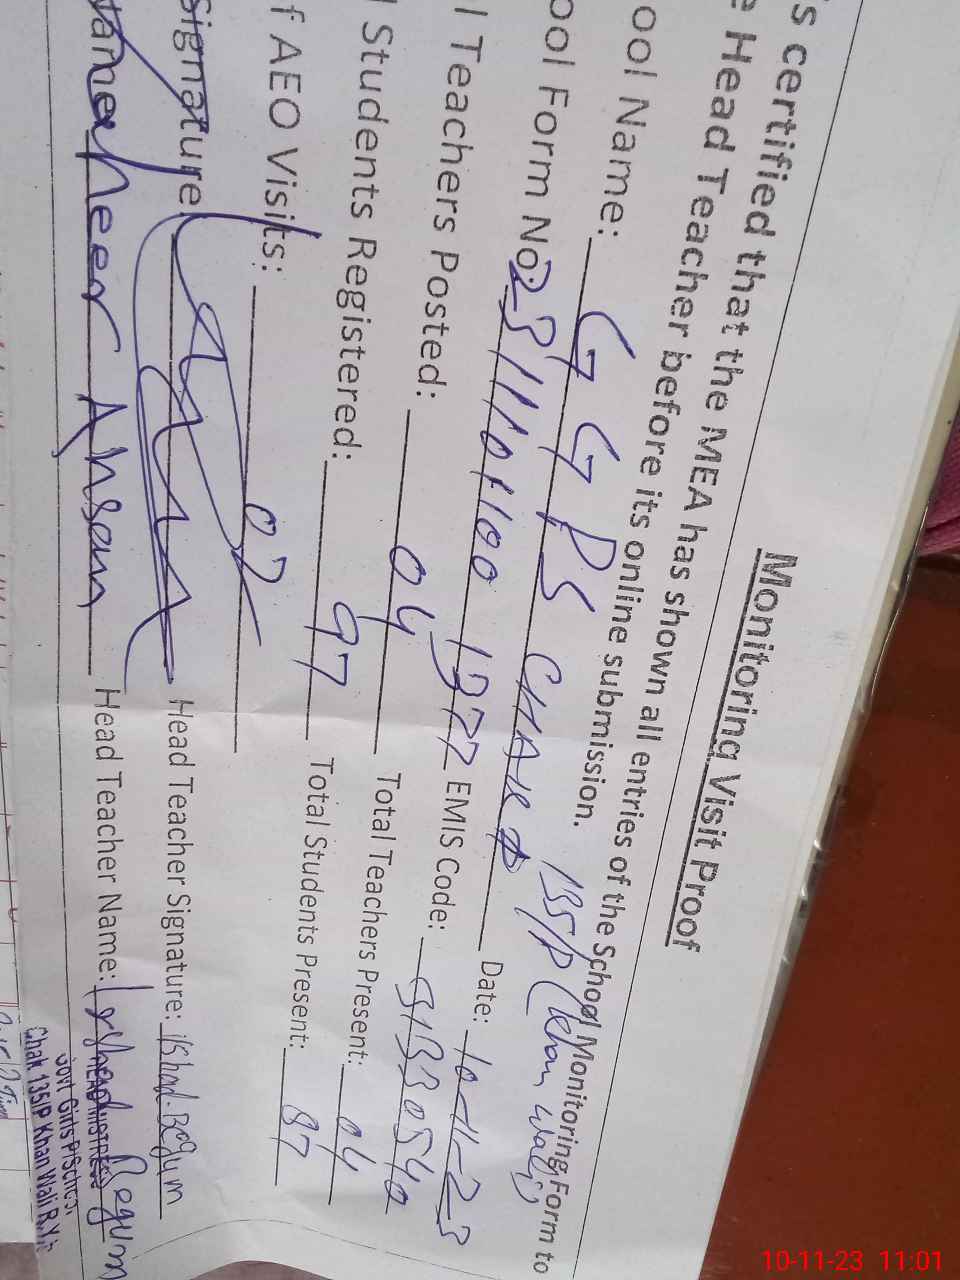 Monitoring Visit Proof
s certified that the MEA has shown all entries of the School Monitoring Form to
e Head Teacher before its online submission.
ool Name: GGPS CHAK # 135/P (Khan Wali)
ool Form No: Date: 10-11-23
l Teachers Posted: 04 EMIS Code: 31330540
l Students Registered: 97 Total Teachers Present: 04
f AEO Visits: 02 Total Students Present: 87
Signature: Head Teacher Signature: Irshad Begum
Name: Ahsan Head Teacher Name: Irshad Begum
HEADMISTRESS
Govt Girls P/School,
Chak 135/P Khan Wali R.Y.
10-11-23 11:01